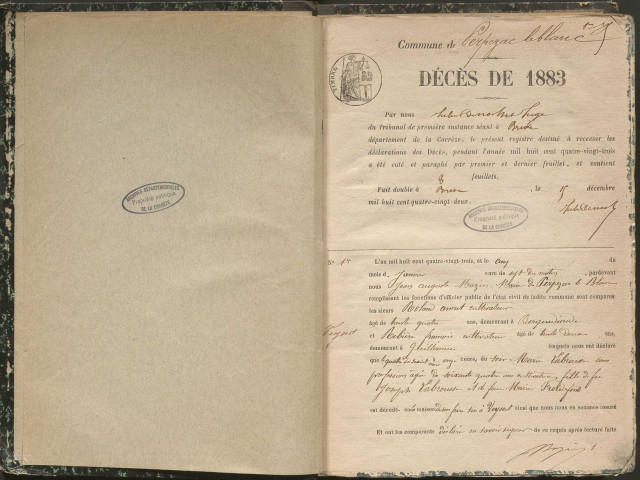 Commune de Perpezac le blanc
DÉCÈS DE 1883
TIMBRE
Par nous Juge
du Tribunal de première instance séant à Brive
département de la Corrèze, le présent registre destiné à recevoir les
déclarations des Décès, pendant l'année mil huit cent quatre-vingt-trois
a été coté et paraphé par premier et dernier feuillet, et contient
8 feuillets.
Fait double à Brive, le 15 décembre
mil huit cent quatre-vingt-deux.
ARCHIVES DÉPARTEMENTALES
Propriété publique
DE LA CORRÈZE
ARCHIVES DÉPARTEMENTALES
Propriété publique
DE LA CORRÈZE
N° 1er L'an mil huit cent quatre-vingt-trois, et le cinq du
mois de janvier heure de sept du matin, pardevant
nous Jean auguste Mazin, Maire de Perpezac le Blanc
remplissant les fonctions d'officier public de l'état civil de ladite commune sont comparus
les sieurs Roland cultivateur
âgé de trente quatre ans, demeurant à
et Ribière françois cultivateur âgé de trente ans,
demeurant à lesquels nous ont déclaré
que le quatre du courant à cinq heures, du soir Marie Labrousse sans
profession, âgée de soixante quatre ans, fille de feu
Joseph Labrousse et de feu Marie
est décédé, en sa maison à Veysset ainsi que nous nous en sommes assuré
Et ont les comparants déclaré ne savoir signer de ce requis après lecture faite
Veysset
Mazin